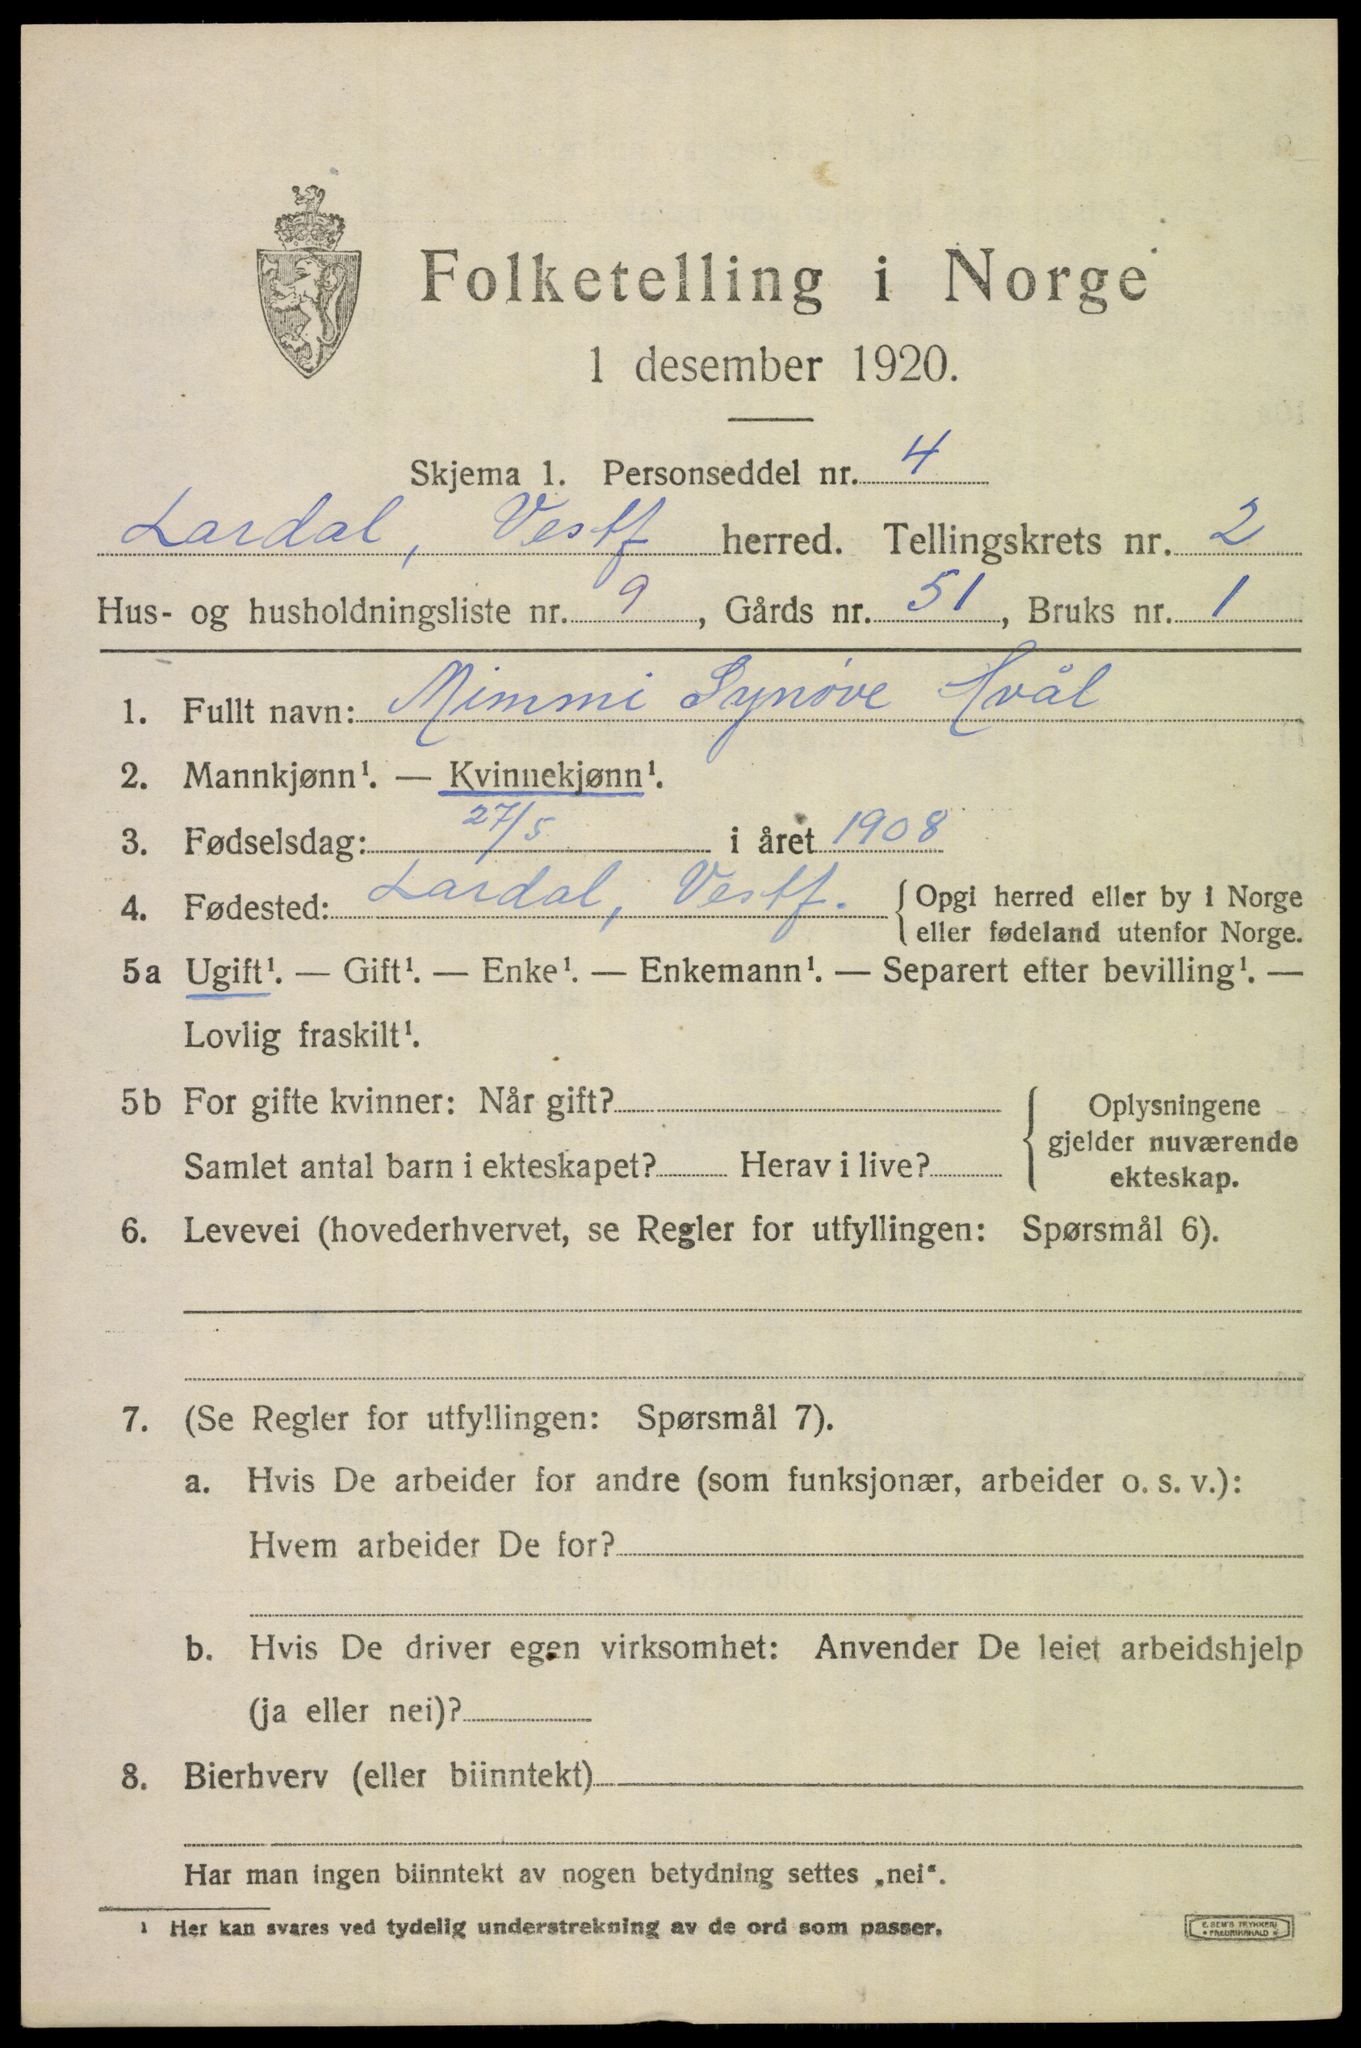 Folketelling i Norge
1 desember 1920.
Skjema 1. Personseddel nr. 4
Lardal, Vestf herred. Tellingskrets nr. 2
Hus- og husholdningsliste nr. 9, Gårds nr. 51, Bruks nr. 1
1. Fullt navn: Mimmi Synøve Hvål
2. Mannkjønn¹. — Kvinnekjønn¹.
3. Fødselsdag: 27/5 i året 1908
4. Fødested: Lardal, Vestf. { Opgi herred eller by i Norge
eller fødeland utenfor Norge.
5a Ugift¹. — Gift¹. — Enke¹. — Enkemann¹. — Separert efter bevilling¹. —
Lovlig fraskilt¹.
5b For gifte kvinner: Når gift?
Samlet antal barn i ekteskapet? Herav i live?
{ Oplysningene
gjelder nuværende
ekteskap.
6. Levevei (hovederhvervet, se Regler for utfyllingen: Spørsmål 6).
7. (Se Regler for utfyllingen: Spørsmål 7).
a. Hvis De arbeider for andre (som funksjonær, arbeider o. s. v.):
Hvem arbeider De for?
b. Hvis De driver egen virksomhet: Anvender De leiet arbeidshjelp
(ja eller nei)?
8. Bierhverv (eller biinntekt)
Har man ingen biinntekt av nogen betydning settes „nei“.
¹ Her kan svares ved tydelig understrekning av de ord som passer.
E. SEM'S TRYKKERI
FREDRIKSHALD